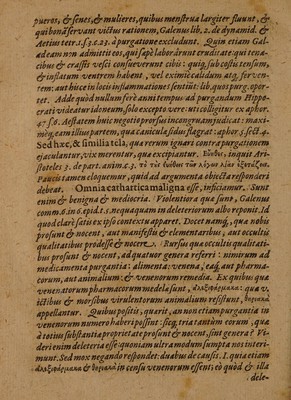 pueros, & senes, & mulieres, quibus menstrua largiter fluunt, &
qui bonã servant victus rationem, Galenus lib. 2. de dynamid. &
Aetius tetr. 1. s. 3. c. 23. à purgatione excludunt. Quin etiam Gal-
ad eam non admittit eos, qui sæpè laborãrunt cruditate: qui tena-
cibus & crassis vesci consueverunt cibis: quiq; sub costis tensum,
& inflatum ventrem habent, vel eximiè calidum atq; ferven-
tem: aut hisce in locis inflammationes sentiũt: lib. quos purg. opor-
tet. Adde quòd nullum ferè anni tempus ad purgandum Hippo-
crati videatur idoneum, solo excepto vere: uti colligitur ex aphor.
47. s. 6. Aestatem huic negotio prorsus incongruam judicat: maxi-
meq; eam illius partem, qua canicula sidus flagrat: aphor. 5. sect. 4.
Sed hæc, & similia tela, quæ rerum ignari contra purgationem
ejaculantur, vix merentur, quæ excipiantur. inquit Ari-
stoteles 3. de part. anim. c. 3.
Paucis tamen eloquemur, quid ad argumenta objecta responderi
debeat. Omnia cathartica maligna esse, inficiamur. Sunt
enim & benigna & mediocria. Violentiora quæ sunt, Galenus
comm. 6. in 6. epid. t. 5. nequaquam in deleteriorum albo reponit. Id
quod clarè satis ex ipso contextu apparet. Docet namq;, quæ nobis
prosunt & nocent, aut manifestis & elementaribus, aut occultis
qualitatibus prodesse & nocere. Rursus quæ occultis qualitati-
bus prosunt & nocent, ad quatuor genera referri: nimirum ad
medicamenta purgantia: alimenta: venena; eaq́; aut pharma-
corum, aut animalium: & venenorum remedia. Ex quibus quæ
venenatorum pharmacorum medela sunt, ἀλεξιφάρμακα: quæ v.
ictibus & morsibus virulentorum animalium resistunt, θηριακὰ
appellantur. Quibus positis, quærit, an non etiam purgantia in
venenorum numero haberi possint: sicq; tria tantùm eorum, quæ
à totius substantiæ proprietate prosunt & nocent, sint genera? Vi-
deri enim deleteria esse: quoniam ultra modum sumpta nos interi-
munt. Sed mox negando respondet: duabus de causis. 1. quia etiam
ἀλεξιφάρμακα & θηριακὰ in censu venenorum essent: eò quòd & illa
dele-